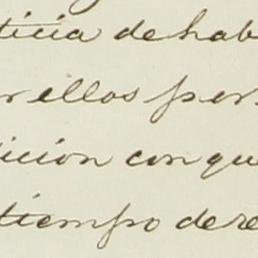 ticia de hab
r ellos per
icion con que
tiempo de re